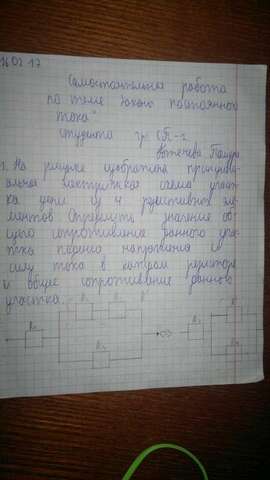 16.02.17
Самостоятельная работа
по теме "Законы постоянного
тока"
студента гр.
1. На рисунке изображена принципи-
альная электрическая схема участ-
ка цепи из 4 резистивных эле-
ментов Определить значение об-
щего сопротивления данного учас-
тка падение напряжения и
силу тока в котором резисторе
и общее сопротивление данного
участка
R₁